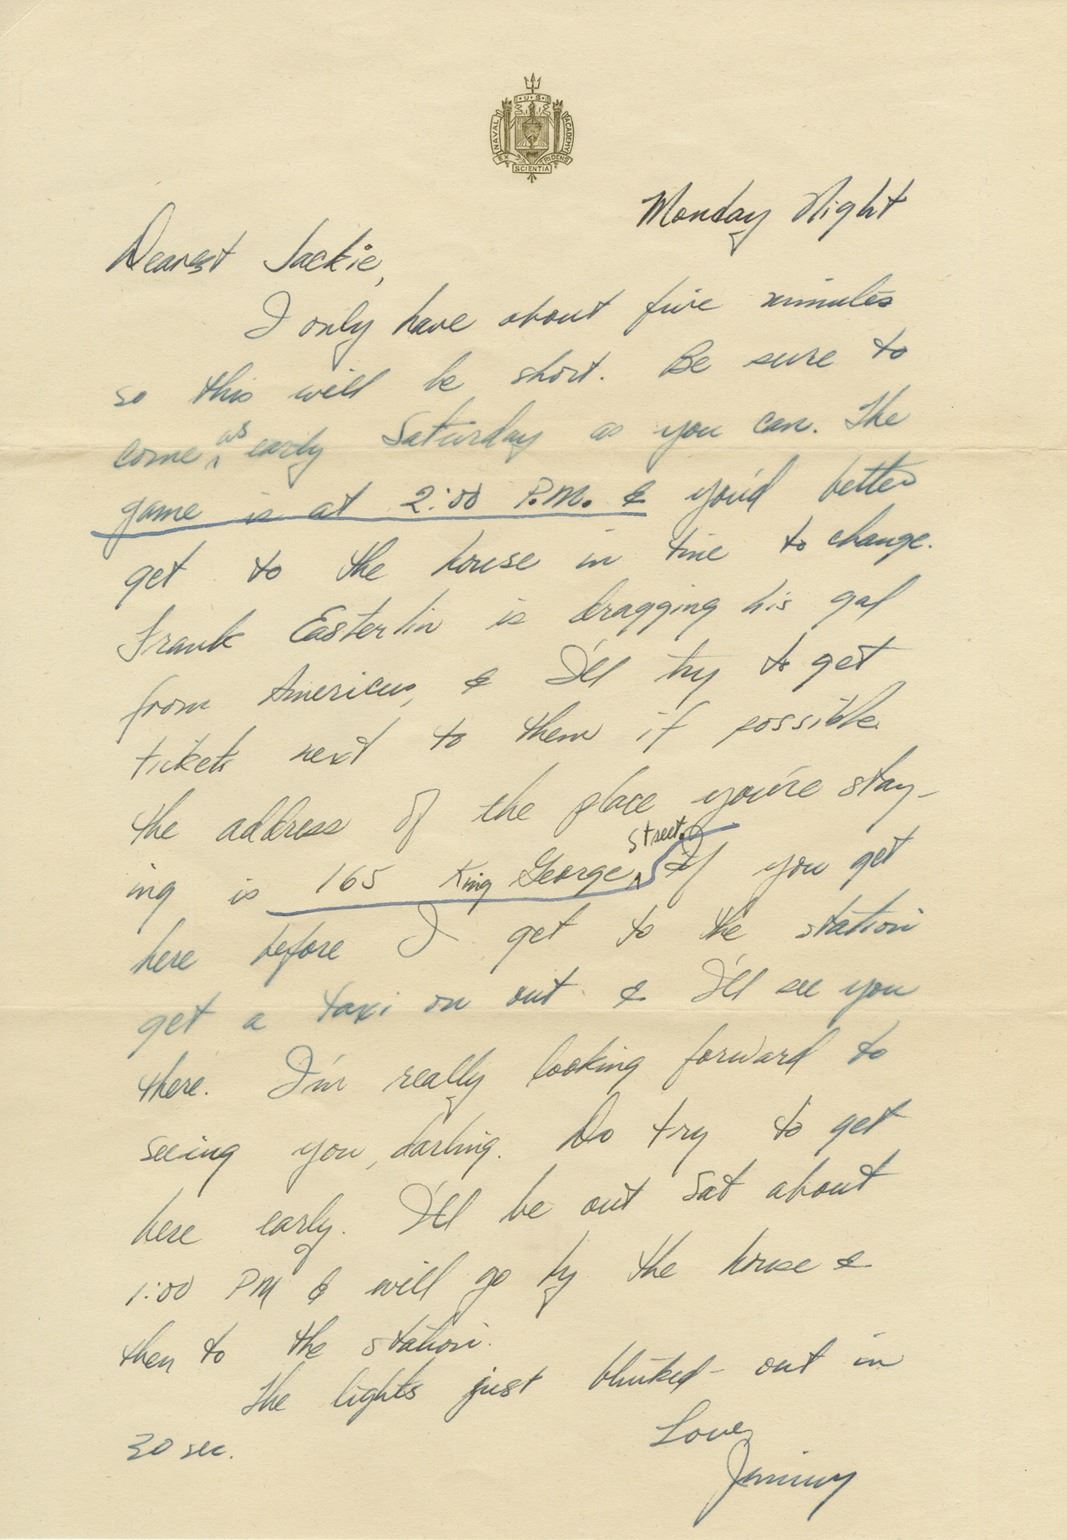 U·S
NAVAL ACADEMY
EX SCIENTIA TRIDENS
Monday Night
Dearest Jackie,
I only have about five minutes
so this will be short. Be sure to
come as early Saturday as you can. The
game is at 2:00 P.M. & you'd better
get to the house in time to change.
Frank Easterlin is dragging his gal
from Americus, & I'll try to get
tickets next to them if possible.
the address of the place you're stay-
ing is 165 King George Street. If you get
here before I get to the station
get a taxi on out & I'll see you
there. I'm really looking forward to
seeing you, darling. Do try to get
here early. I'll be out Sat about
1:00 PM & will go by the house &
then to the station.
The lights just blinked - out in
30 sec.
Love,
Jimmy